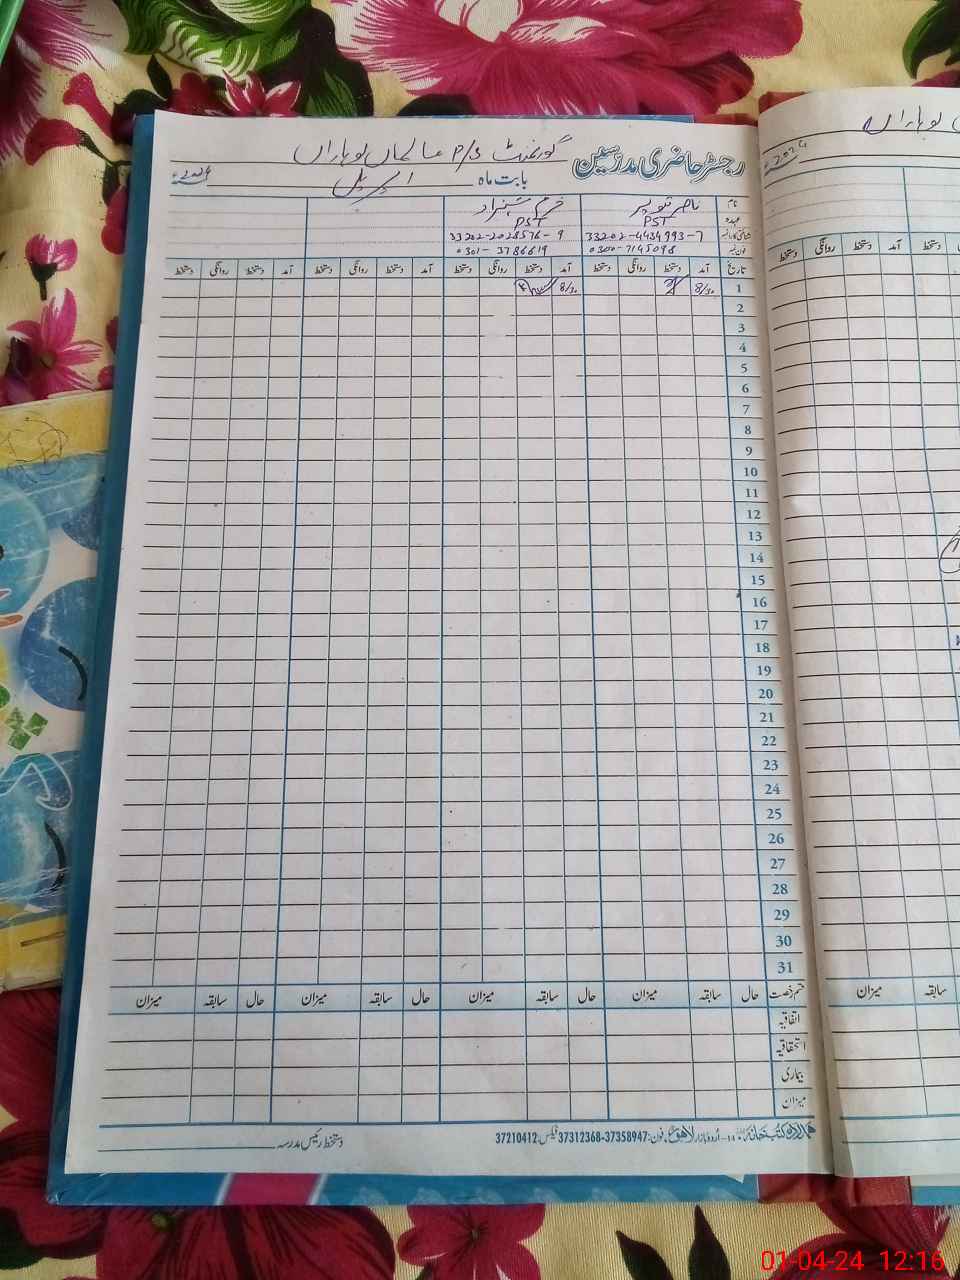 رجسٹر حاضری مدرسین گورنمنٹ P/S عالماں لوہاراں
بابت ماہ اپریل
نام ناصر تنویر خرم شہزاد
عہدہ PST PST
شناختی کارڈ نمبر 33202-4434993-7 33202-2028576-9
فون نمبر 0300-7145098 0301-3786619
تاریخ آمد دستخط روانگی دستخط آمد دستخط روانگی دستخط آمد دستخط روانگی دستخط آمد دستخط روانگی دستخط
1 8/30 8/30
2
3
4
5
6
7
8
9
10
11
12
13
14
15
16
17
18
19
20
21
22
23
24
25
26
27
28
29
30
31
ختم رخصت حال سابقہ میزان حال سابقہ میزان حال سابقہ میزان حال سابقہ میزان
اتفاقیہ
استحقاقیہ
بیماری
میزان
اُردو بازار لاہور فون: 37358947-37312368 فیکس: 37210412
دستخط رئیس مدرسہ
لوہاراں
2024ء
دستخط روانگی آمد دستخط
میزان سابقہ
01-04-24 12:16